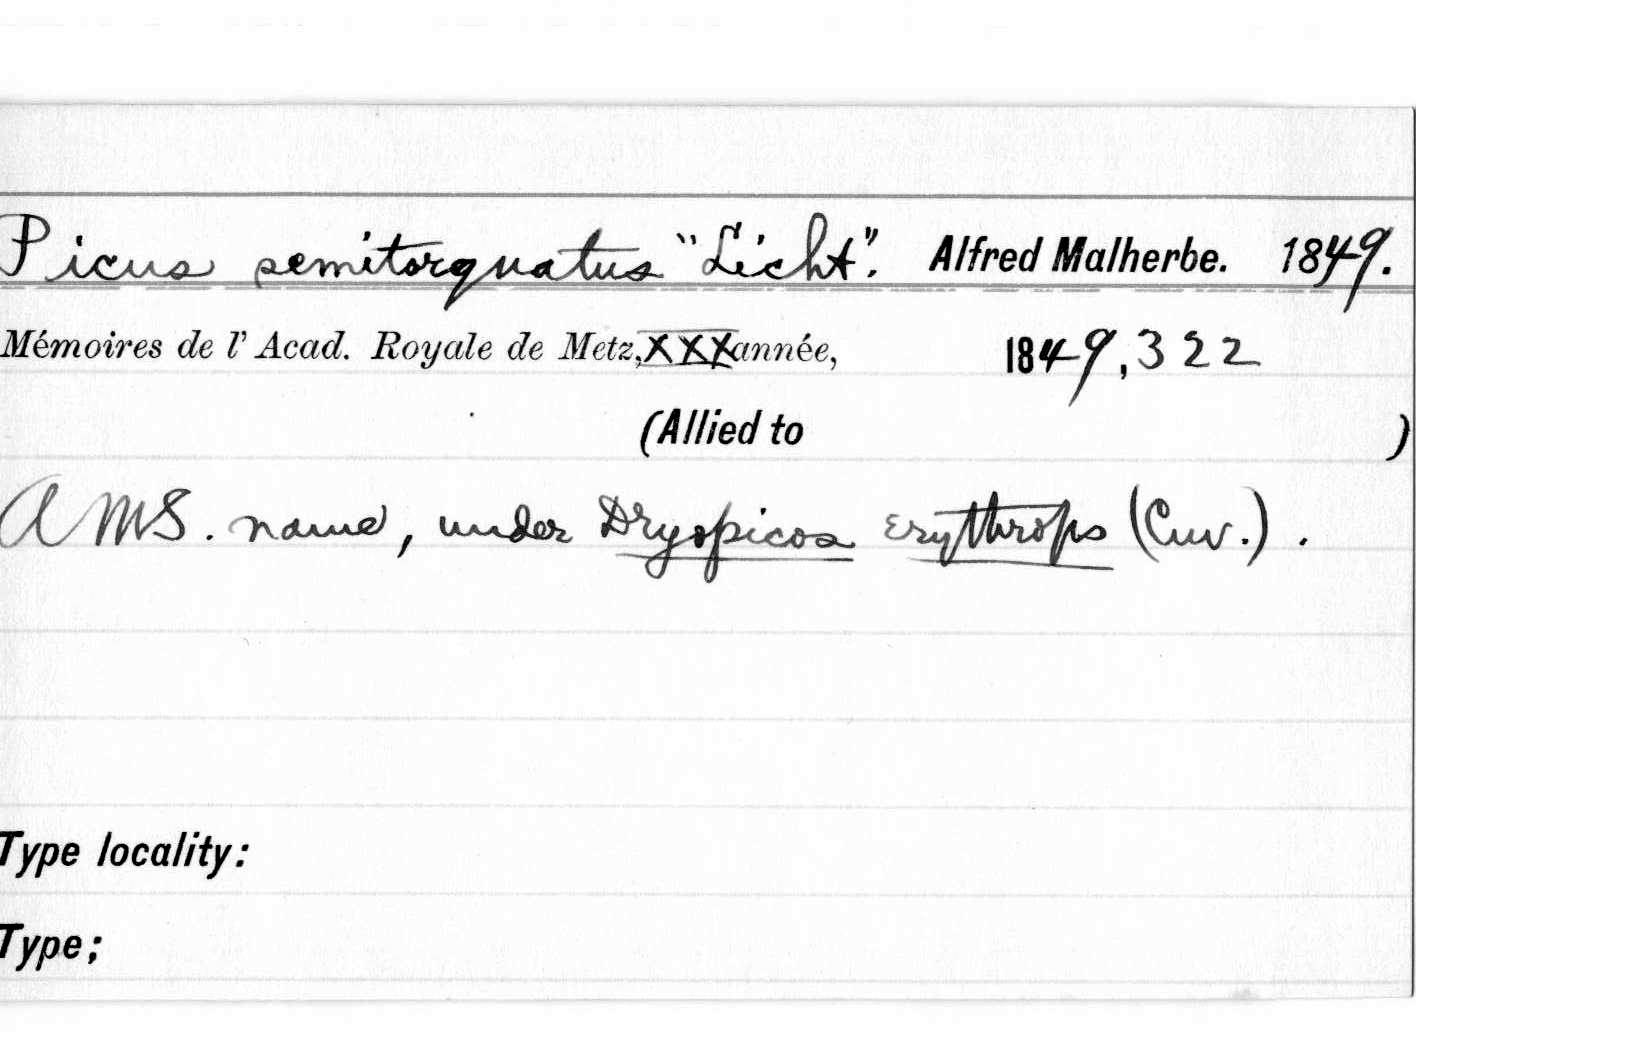 Picus semitorquatus "Licht". Alfred Malherbe. 1849.
Mémoires de l' Acad. Royale de Metz, XXX année, 1849, 322
(Allied to )
A MS. name, under Dryopicos erythrops (Cuv.).
Type locality:
Type;